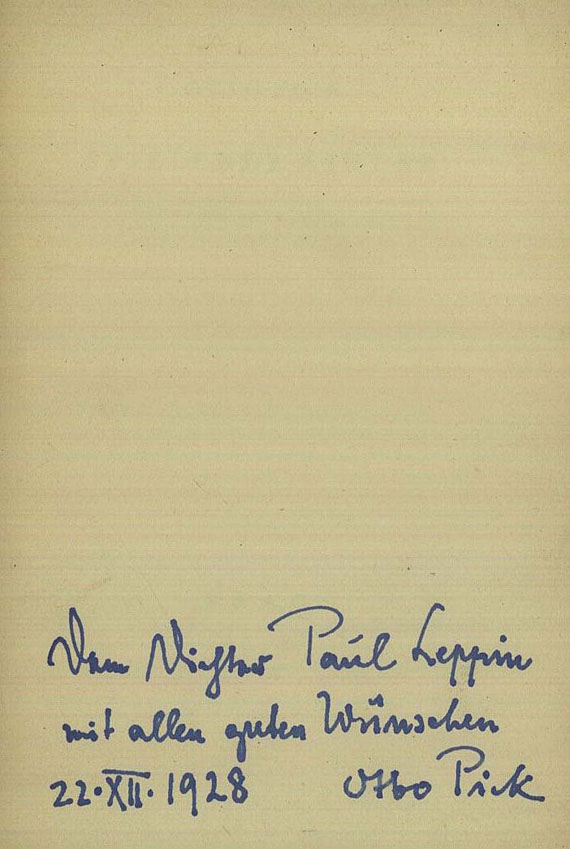 Dem Dichter Paul Leppin
mit allen guten Wünschen
22.XII.1928 Otto Pick